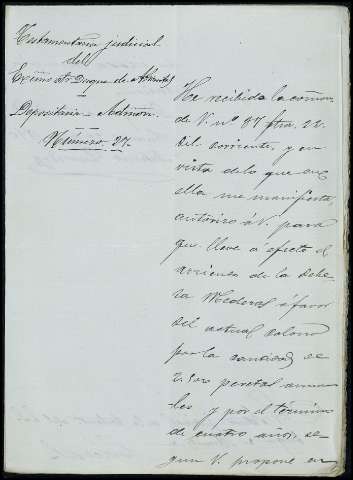 Testamentaria judicial
del
Excmo Sr Duque de
Depositaria - Admon.
Número 27.
He recibido la comon
de V. nº 87 fha. 22
del corriente, y en
vista de lo que en
ella me manifiesta,
autorizo á V. para
que lleve a efecto el
arriendo de la dehe
sa Mederas á favor
del actual colono
por la cantidad de
pesetas anua
les y por el término
de cuatro años, se
gun V. propone en